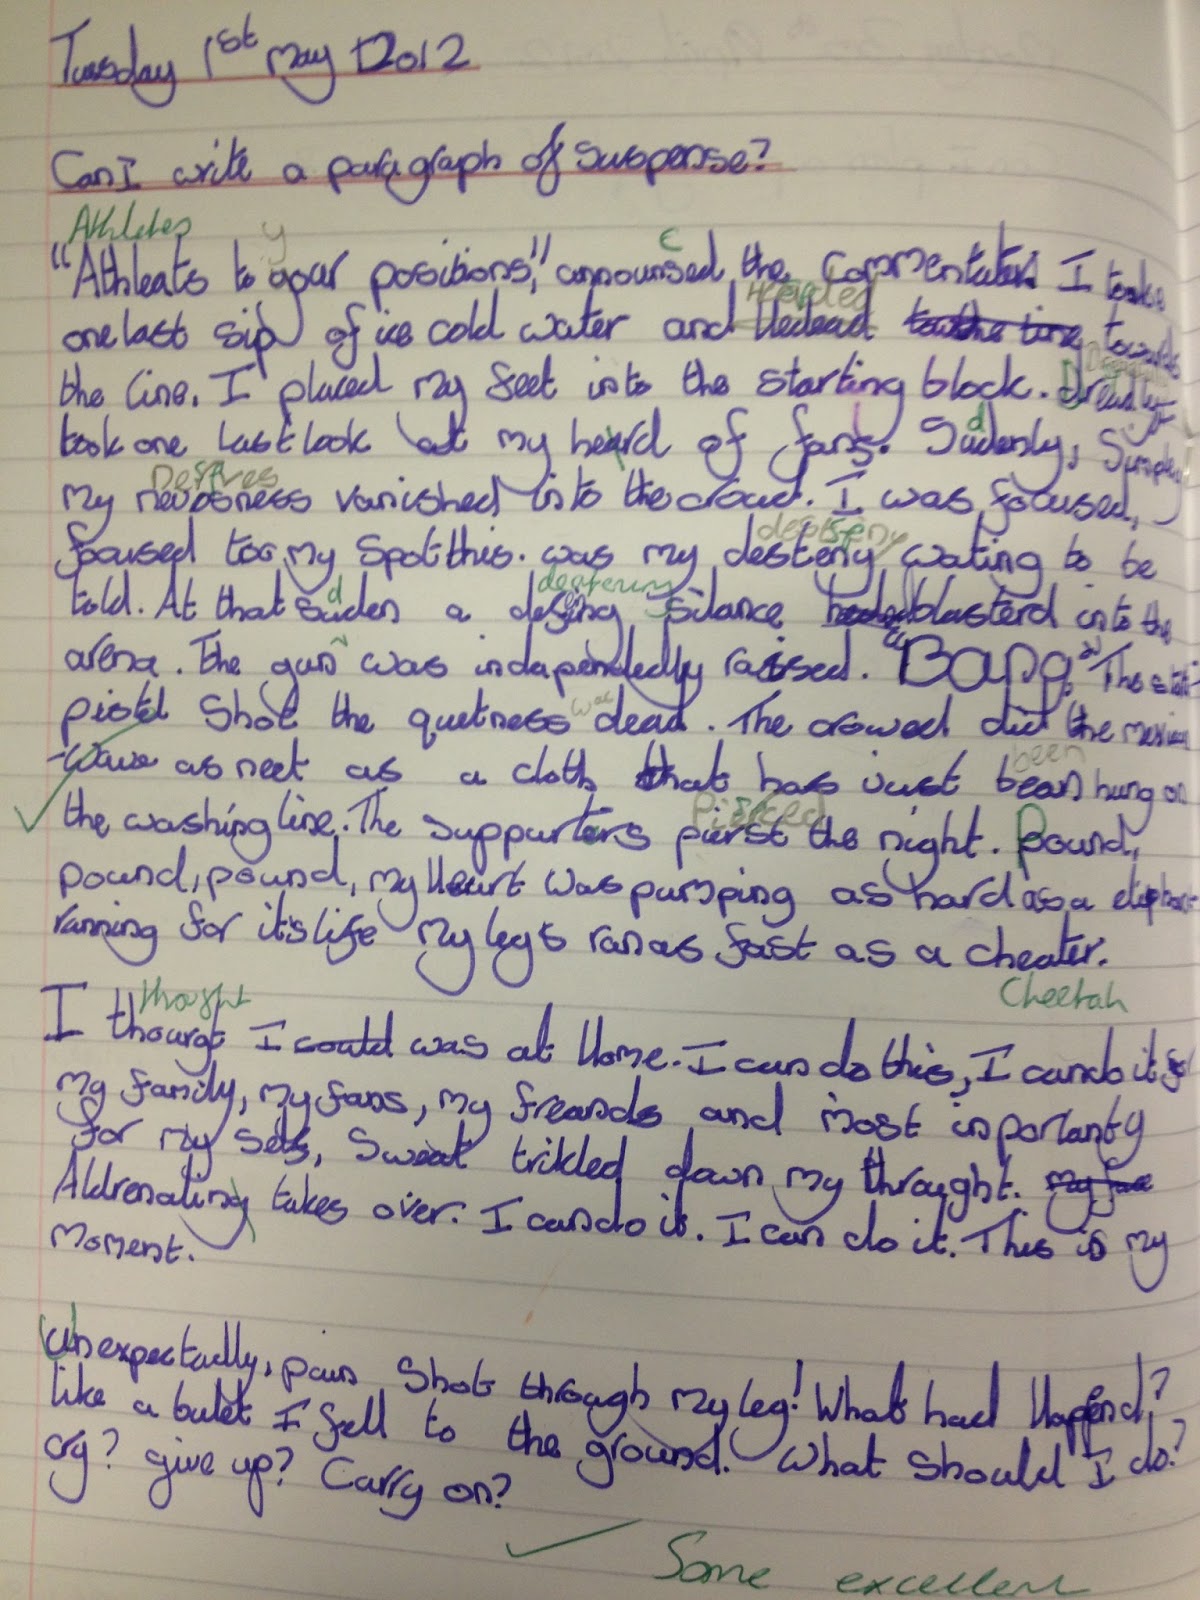 Tuesday 1st May 2012
Can I write a paragraph of suspense?
Athletes y c
"Athleats to your positions," announsed the commentator. I took
Headed
one last sip of ice cold water and Hedead towards
the line. I placed my feet into the starting block. Dreadly I
d
took one last look at my heard of fans. Sudenly,
my nevosness vanished into the croud. I was focused,
destiny
focused too my spot this. was my desteny wating to be
d deafening
told. At that suden a defing silance blasterd into the
arena. The gun was indapendedly raissed. "Bang" The
was
pistol shot the quetness dead. The crowed did the mexican
been
-Wave as neet as a cloth that has just bean hung on
Pierced
the washing line. The supporters pierst the night. Pound,
pound, pound, my Heart was pumping as hard as a
running for it's life My legs ran as fast as a cheater.
thought Cheetah
I thourgt I could was at Home. I can do this, I can do it for
my family, my fans, my freands and most importanty
for my sels, sweat trikled down my throught.
Aldrenating takes over. I can do it. I can do it. This is my
moment.
Unexpectadly, pain shot through my leg! What had Happend?
like a bulet I fell to the ground. What should I do?
cry? give up? Carry on?
Some excellent